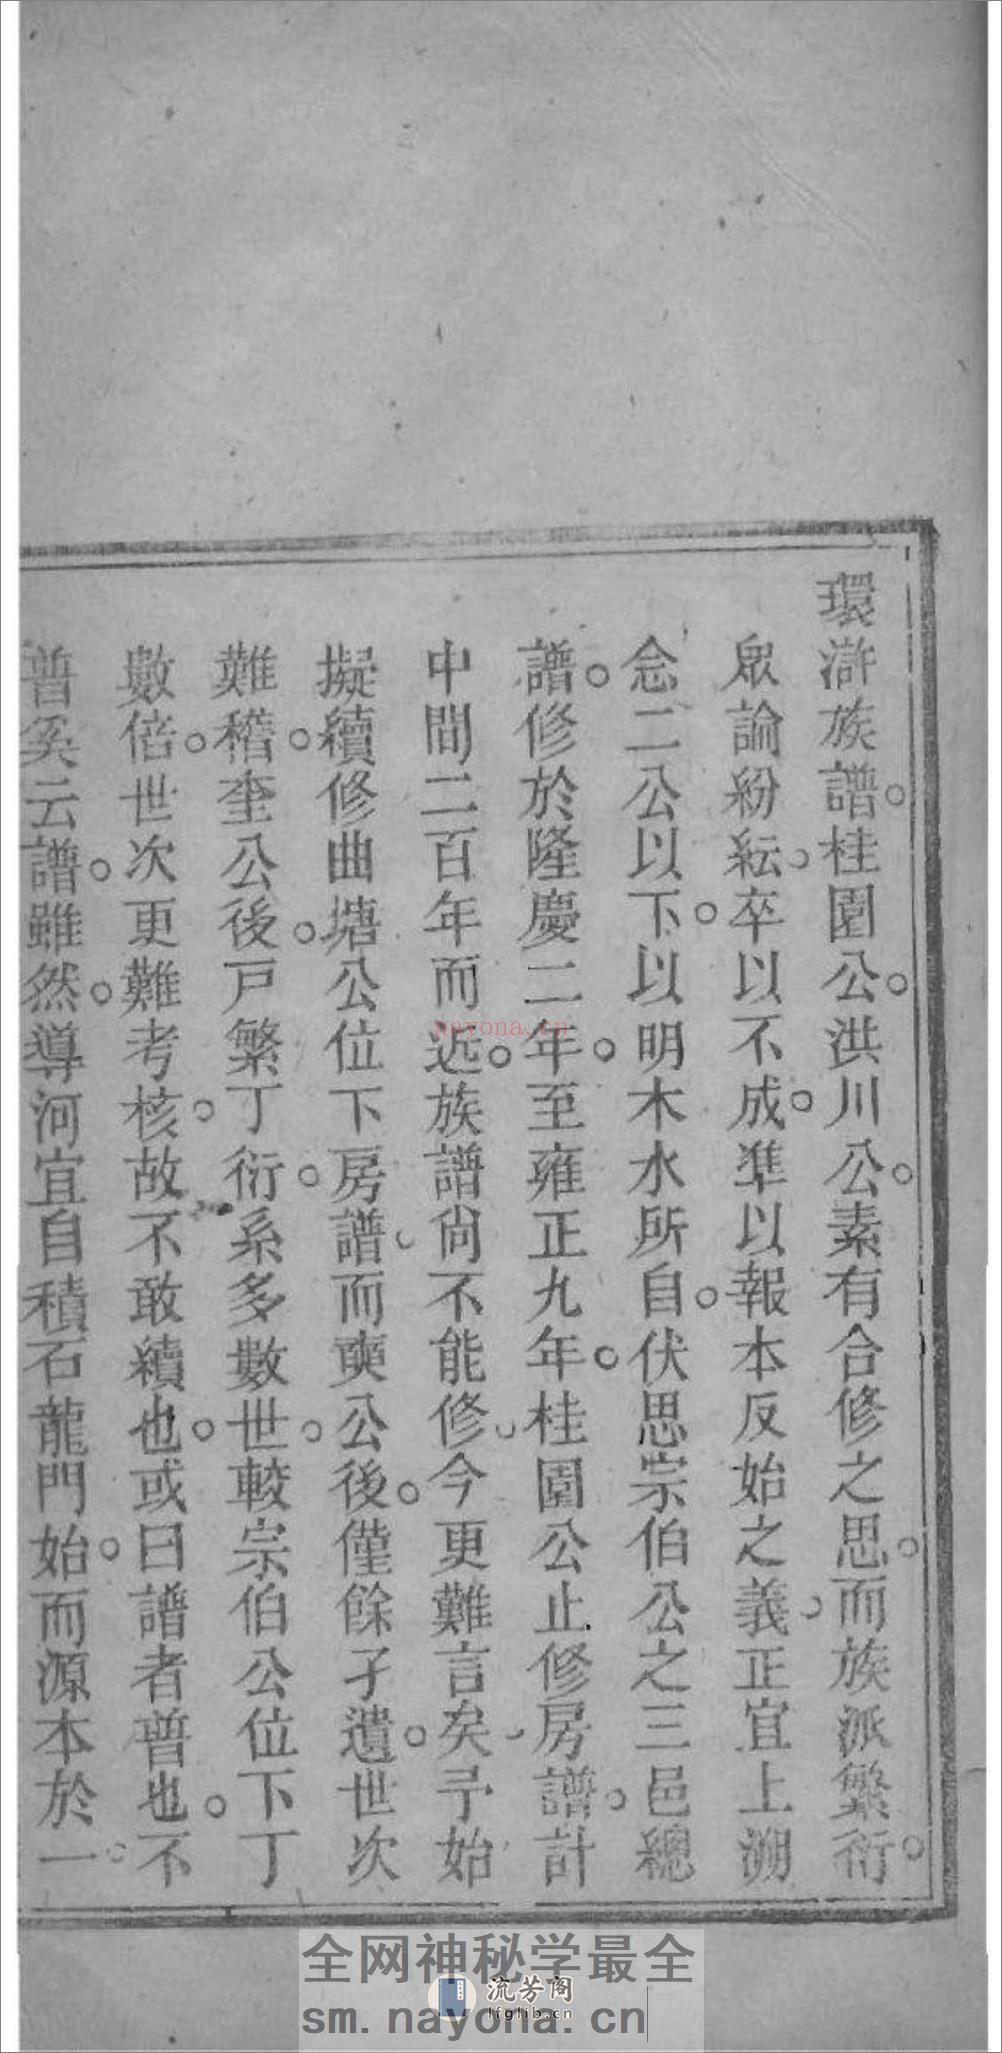 環滸族譜。桂園公。洪川公。素有合修之思。而族派繁衍。
眾論紛紜。卒以不成。準以報本反始之義。正宜上溯
念二公以下。以明木水所自。伏思宗伯公之三邑總
譜。修於隆慶二年。至雍正九年。桂園公止修房譜。計
中間二百年而近。族譜尙不能修。今更難言矣。予始
擬續修曲塘公位下房譜。而奭公後。僅餘孑遺。世次
難稽。奎公後。戸繁丁衍。系多數世。較宗伯公位下丁
數倍。世次更難考核。故不敢續也。或曰譜者普也。不
普奚云譜。雖然。導河宜自積石龍門始。而源本於一。
nayona.cn
全网神秘学最全
流芳阁
lfglib.cn
sm.nayona.cn